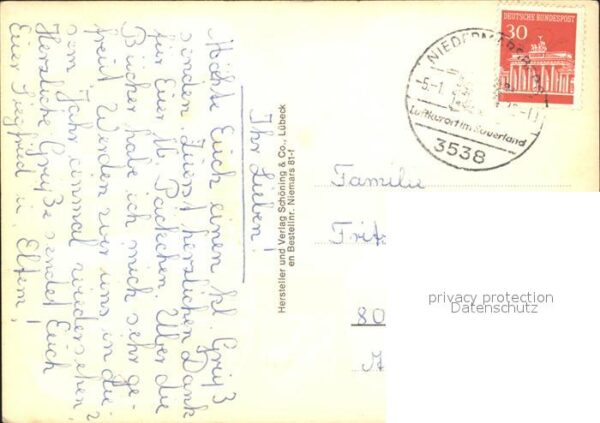 Ihr Lieben!
Möchte Euch einen kl. Gruß
senden. Zuerst herzlichen Dank
für Eier u. Päckchen. Über die
Bücher habe ich mich sehr ge-
freut. Werden wir uns in die-
sem Jahr einmal wiedersehen?
Herzliche Grüße sendet Euch
Euer Siegfried u. Eltern!
Hersteller und Verlag Schöning & Co., Lübeck
en Bestellnr. Niemars 81-f
DEUTSCHE BUNDESPOST
30
NIEDERMARSB
-5.-1
Luftkurort im Sauerland
3538
Familie
Fritz
80
A
privacy protection
Datenschutz